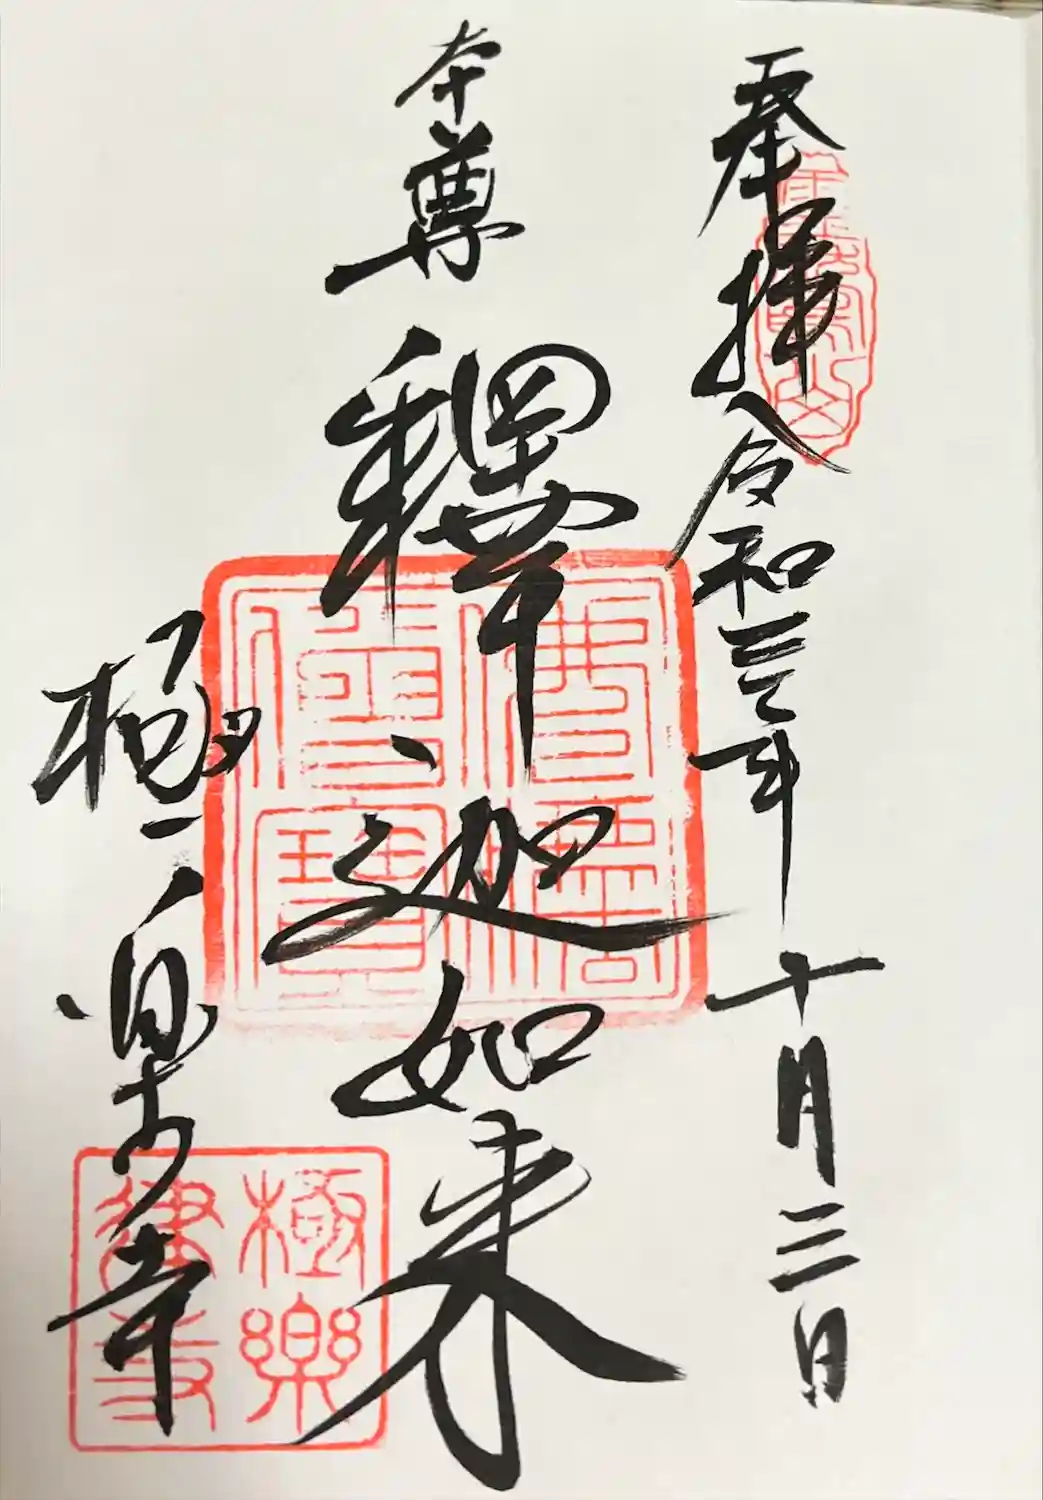 奉拝 令和三年 十月三日
本尊 釋迦如来
極楽寺
佛法僧寶
極樂律寺